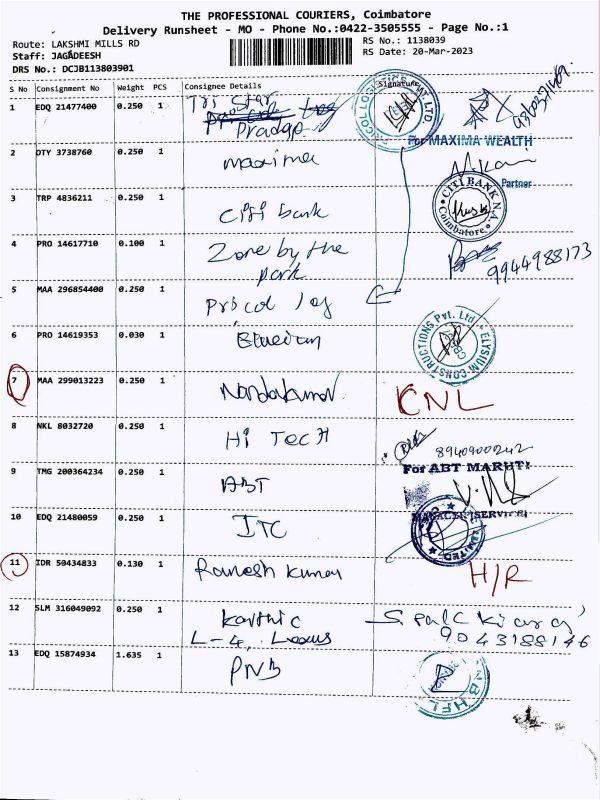 THE PROFESSIONAL COURIERS, Coimbatore
Delivery Runsheet - MO - Phone No.:0422-3505555 - Page No.:1
Route: LAKSHMI MILLS RD
RS No.: 1138039
Staff: JAGADEESH
RS Date: 20-Mar-2023
DRS No.: DCJB113803901
S No Consignment No Weight PCS Consignee Details Signature
1 EDQ 21477400 0.250 1 Tri Star
Pradap
For MAXIMA WEALTH
2 DTY 3738760 0.250 1 maxima
Partner
3 TRP 4836211 0.250 1 citi bank
CITI BANK N.A.
Coimbatore
4 PRO 14617710 0.100 1 Zone by the
park
9944988173
5 MAA 296854400 0.250 1 Pricol log
6 PRO 14619353 0.030 1
ELYSIUM CONSTRUCTIONS Pvt. Ltd.
7 MAA 299013223 0.250 1 Nandakumar CNL
8 NKL 8032720 0.250 1 Hi TecH
8940900242
For ABT MARUTI
9 TMG 200364234 0.250 1 ABT
MANAGER (SERVICE)
10 EDQ 21480059 0.250 1 ITC
LIMITED
11 IDR 50434833 0.130 1 Ramesh Kumar H/R
12 SLM 316049092 0.250 1 Karthic
L-4, Lexus
9043188146
13 EDQ 15874934 1.635 1 PNB